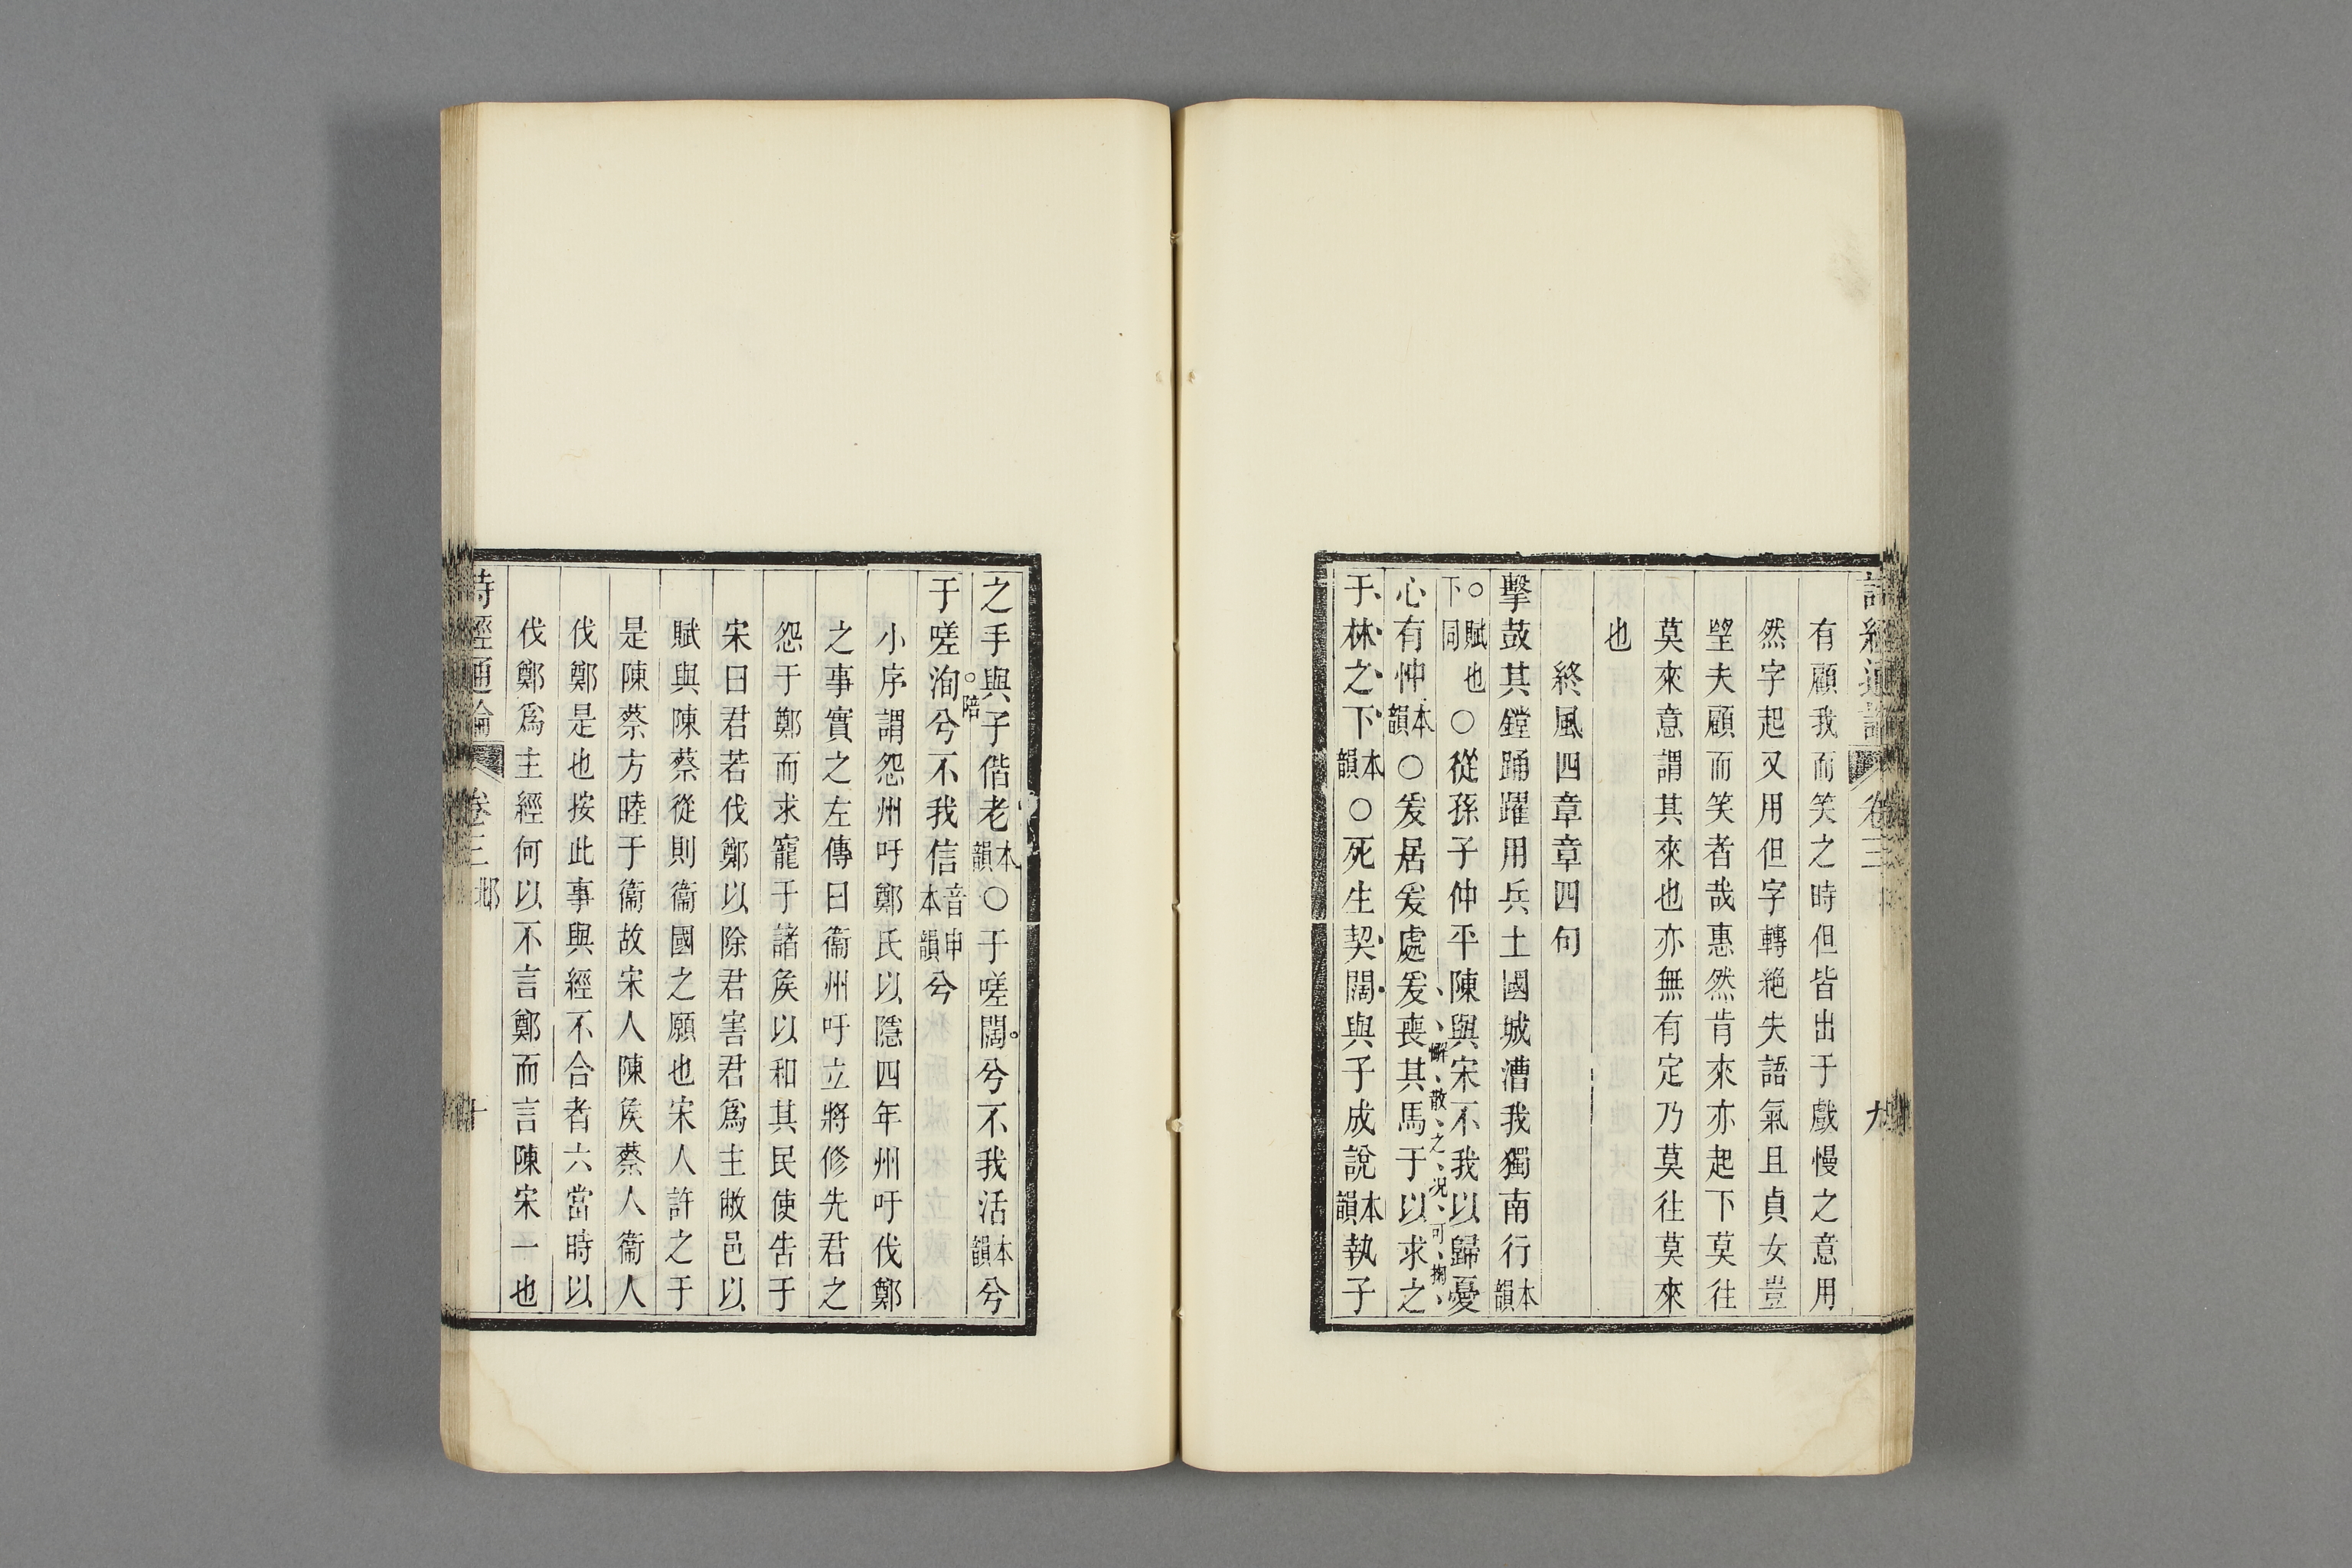 詩經通論 卷三 九
有顧我而笑之時但皆出于戲慢之意用
然字起又用但字轉絶失語氣且貞女豈
朢夫顧而笑者哉惠然肯來亦起下莫往
莫來意謂其來也亦無有定乃莫往莫來
也
終風四章章四句
擊鼓其鏜踊躍用兵土國城漕我獨南行本韻
○賦也下同○從孫子仲平陳與宋不我以歸憂
心有忡本韻○爰居爰處爰喪其馬于以求之
懈散之况可掬
于林之下本韻○死生契闊與子成說本韻執子
之手與子偕老本韻○于嗟闊兮不我活本韻兮
陪
于嗟洵兮不我信音申本韻兮
小序謂怨州吁鄭氏以隱四年州吁伐鄭
之事實之左傳曰衞州吁立將修先君之
怨于鄭而求寵于諸侯以和其民使告于
宋曰君若伐鄭以除君害君爲主敝邑以
賦與陳蔡從則衞國之願也宋人許之于
是陳蔡方睦于衞故宋人陳侯蔡人衞人
伐鄭是也按此事與經不合者六當時以
伐鄭爲主經何以不言鄭而言陳宋一也
詩經通論 卷三 邶 十